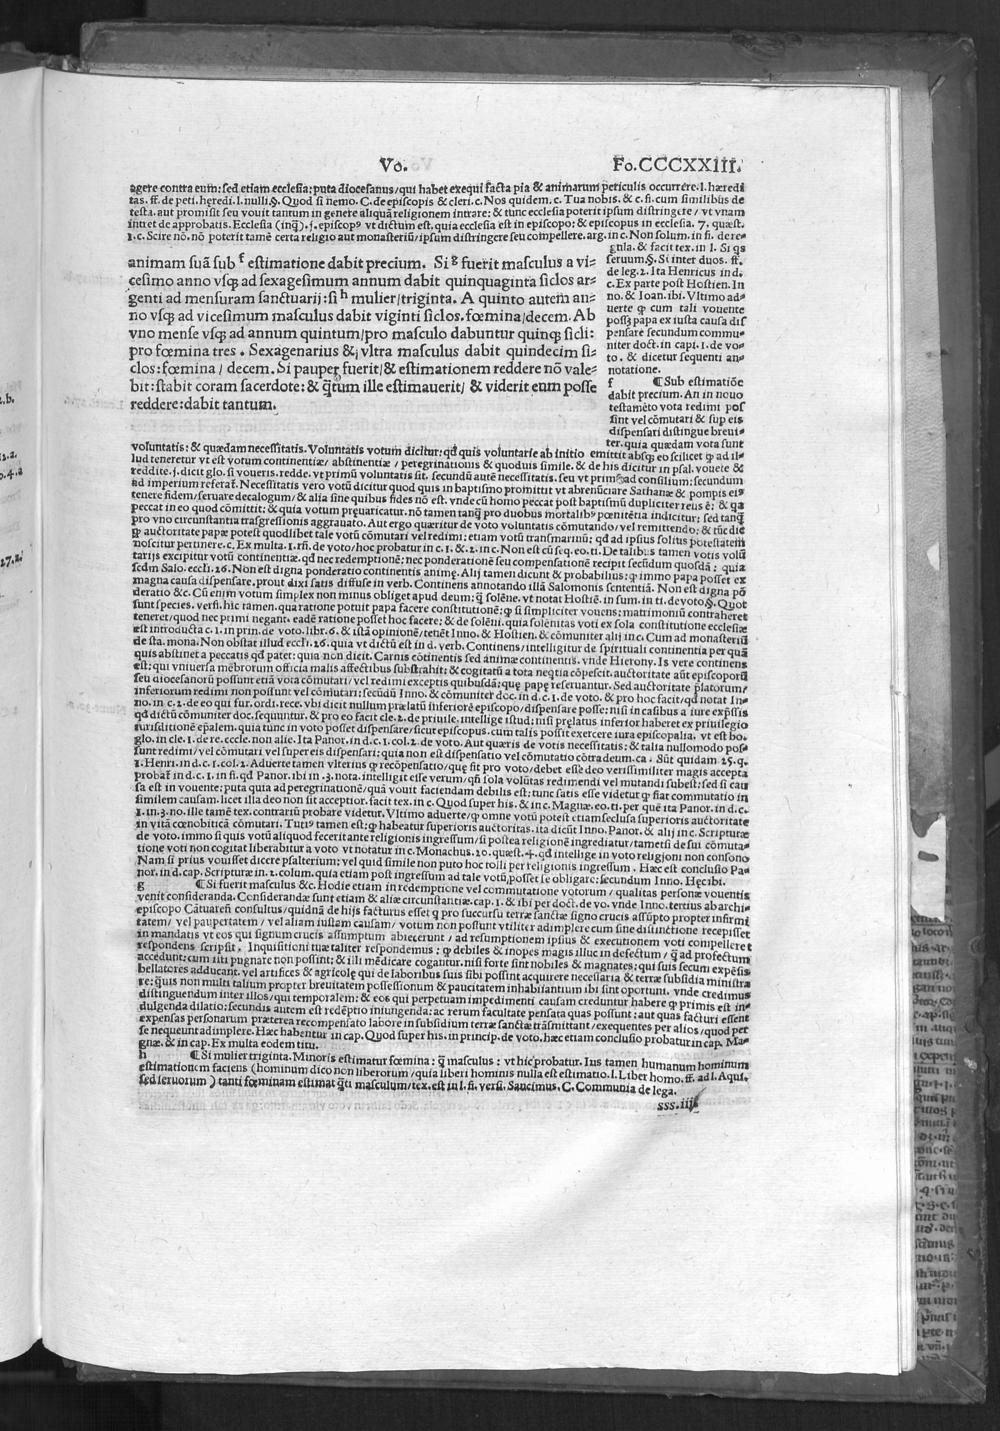 Vo. Fo.CCCXXIII.
agere contra eum: sed etiam ecclesia: puta diocesanus/ qui habet exequi facta pia & animarum periculis occurrere. l. hæredi
tas. ff. de peti. hęredi. l. nulli.§. Quod si nemo. C. de episcopis & cleri. c. Nos quidem. c. Tua nobis. & c. fi. cum similibus de
testa. aut promisit seu vouit tantum in genere aliquā religionem intrare: & tunc ecclesia poterit ipsum distringere/ vt vnam
intret de approbatis. Ecclesia (inq̄). j. episcopꝰ vt dictum est. quia ecclesia est in episcopo: & episcopus in ecclesia. 7. quæst.
1. c. Scire nō. nō poterit tamē certa religio aut monasteriū/ ipsum distringere seu compellere. arg. in c. Non solum. in fi. de re=
gula. & facit tex. in l. Si qs
seruum.§. Si inter duos. ff.
de leg. 2. Ita Henricus in d.
c. Ex parte post Hostien. In
no. & Ioan. ibi. Vltimo ad=
uerte ꝙ cum tali vouente
possꝫ papa ex iusta causa dis
pensare secundum commu=
niter doct. in capi. 1. de vo=
to. & dicetur sequenti an=
notatione.
animam suā sub f estimatione dabit precium. Si g fuerit masculus a vi=
cesimo anno vsqꝫ ad sexagesimum annum dabit quinquaginta siclos ar=
genti ad mensuram sanctuarij: si h mulier/ triginta. A quinto autem an=
no vsqꝫ ad vicesimum masculus dabit viginti siclos. fœmina/ decem. Ab
vno mense vsqꝫ ad annum quintum/ pro masculo dabuntur quinqꝫ sicli:
pro fœmina tres. Sexagenarius & vltra masculus dabit quindecim si=
clos: fœmina/ decem. Si pauper fuerit/ & estimationem reddere nō vale=
bit: stabit coram sacerdote: & q̄tum ille estimauerit/ & viderit eum posse
reddere: dabit tantum.
f ¶ Sub estimatiōe
dabit precium. An in nouo
testamēto vota redimi pos
sint vel cōmutari & sup eis
dispensari distingue breui=
ter. quia quædam vota sunt
voluntatis: & quædam necessitatis. Voluntatis votum dicitur: qd quis voluntarie ab initio emittit absqꝫ eo scilicet ꝙ ad il=
lud teneretur vt est votum continentiæ/ abstinentiæ/ peregrinationis & quoduis simile. & de his dicitur in psal. vouete &
reddite. j. dict glo. si voueris. redde. vt primū voluntatis sit. secundū autē necessitatis. seu vt primū ad consilium: secundum
ad imperium referat̄. Necessitatis vero votū dicitur quod quis in baptismo promittit vt abrenūciare Sathanæ & pompis eiꝰ
tenere fidem/ seruare decalogum/ & alia sine quibus fides nō est. vnde cū homo peccat post baptismū dupliciter reus ē: & qa
peccat in eo quod cōmittit: & quia votum pręuaricatur. nō tamen tanq̄ pro duobus mortalibꝰ pœnitētia indicitur: sed tanq̄
pro vno circunstantia trāsgressionis aggrauato. Aut ergo quæritur de voto voluntatis cōmutando/ vel remittendo: & tūc dic
ꝙ auctoritate papæ potest quodlibet tale votū cōmutari vel redimi: etiam votū transmarinū: qd ad ipsius solius potestatem
noscitur pertinere. c. Ex multa. 1. rñ. de voto/ hoc probatur in c. 1. & 2. in c. Non est cū seq. eo. ti. De talibus tamen votis volū
tarijs excipitur votū continentiæ. qd nec redemptionē: nec ponderationē seu compensationē recipit secūdum quosdā: quia
scdm Salo. eccli. 26. Non est digna ponderatio continentis animę. Alij tamen dicunt & probabilius: ꝙ immo papa posset ex
magna causa dispensare. prout dixi satis diffuse in verb. Continens annotando illā Salomonis sententiā. Non est digna pō
deratio &c. Cū enim votum simplex non minus obliget apud deum: q̄ solēne. vt notat Hostiē. in sum. in ti. de voto.§. Quot
sunt species. versi. hic tamen. qua ratione potuit papa facere constitutionē: ꝙ si simpliciter vouens: matrimoniū contraheret
teneret/ quod nec primi negant. eadē ratione posset hoc facere: & de solēni. quia solēnitas voti ex sola constitutione ecclesiæ
est introducta c. 1. in prin. de voto. libr. 6. & istā opinionē/ tenēt Inno. & Hostien. & cōmuniter alij in c. Cum ad monasteriū
de sta. mona. Non obstat illud eccli. 26. quia vt dictū est in d. verb. Continens/ intelligitur de spirituali continentia per quā
quis abstinet a peccatis qd patet: quia non dicit. Carnis cōtinentis sed animæ continentis. vnde Hierony. Is vere continens
est: qui vniuersa mēbrorum officia malis affectibus substrahit: & cogitatū a tota neqtia cōpescit. auctoritate aūt episcoporū
seu diocesanorū possunt etiā vota cōmutari/ vel redimi exceptis quibusdā: quę papę reseruantur. Sed auctoritate prelatorum/
inferiorum redimi non possunt vel cōmutari: secūdū Inno. & cōmuniter doc. in d. c. 1. de voto. & pro hoc facit/ qd notat In=
no. in c. 2. de eo qui fur. ordi. rece. vbi dicit nullum prælatū inferiorē episcopo/ dispensare posse: nisi in casibus a iure expr̄sis
qd dictū cōmuniter doc. sequuntur. & pro eo facit cle. 2. de priuile. intellige istud: nisi prelatus inferior haberet ex priuilegio
iurisditionē ep̄alem. quia tunc in voto posset dispensare/ sicut episcopus. cum talis possit exercere iura episcopalia. vt est bo.
glo. in cle. 1. de rere. eccle. non alie. Ita Panor. in d. c. 1. col. 2. de voto. Aut quæris de votis necessitatis: & talia nullomodo pos=
sunt redimi/ vel cōmutari vel super eis dispensari: quia non est dispensatio vel cōmutatio cōtra deum. ca. Sūt quidam 25. q.
1. Henri. in d. c. 1. col. 2. Aduerte tamen vlterius ꝙ recōpensatio/ que fit pro voto/ debet esse deo verisimiliter magis accepta
probat̄ in d. c. 1. in fi. qd Panor. ibi in .3. nota. intelligit esse verum/ qn̄ sola volūtas redimendi vel mutandi subest: sed si cau
sa est in vouente: puta quia ad peregrinationē/ quā vouit faciendam debilis est: tunc satis esse videtur ꝙ fiat commutatio in
similem causam. licet illa deo non sit acceptior. facit tex. in c. Quod super his. & in c. Magnæ. eo. ti. per quē ita Panor. in d. c.
1. in .3. no. ille tamē tex. contrariū probare videtur. Vltimo aduerte/ ꝙ omne votū potest etiam seclusa superioris auctoritate
in vitā cœnobiticā cōmutari. Tutiꝰ tamen est: ꝙ habeatur superioris auctoritas. ita dicūt Inno. Panor. & alij in c. Scripturæ
de voto. immo si quis votū aliquod fecerit ante religionis ingressum/ si postea religionē ingrediatur/ tametsi de sui cōmuta=
tione voti non cogitat liberabitur a voto vt notatur in c. Monachus. 20. quæst. 4. qd intellige in voto religioni non consono
Nam si prius vouisset dicere psalterium: vel quid simile non puto hoc tolli per religionis ingressum. Hæc est conclusio Pa=
nor. in d. cap. Scripturæ in .2. colum. quia etiam post ingressum ad tale votū posset se obligare: secundum Inno. Hęc ibi.
g ¶ Si fuerit masculus &c. Hodie etiam in redemptione vel commutatione votorum/ qualitas personæ vouentis
venit consideranda. Considerandæ sunt etiam & aliæ circunstantiæ. cap. 1. & ibi per doct. de vo. vnde Inno. tertius ab archi=
episcopo Cātuareñ consultus/ quidnā de hijs facturus esset q pro succursu terræ sanctæ signo crucis assūpto propter infirmi
tatem/ vel paupertatem/ vel aliam iustam causam/ votum non possunt vtiliter adimplere cum sine distinctione recepisset
in mandatis vt eos qui signum crucis assumptum abiecerunt/ ad resumptionem ipsius & executionem voti compelleret
respondens scripsit. Inquisitioni tuæ taliter respondemus: ꝙ debiles & inopes magis illuc in defectum/ q̄ ad profectum
accedunt: cum isti pugnare non possint: & illi mēdicare cogantur. nisi forte sint nobiles & magnates: qui suis secum expēsis
bellatores adducant. vel artifices & agricolę qui de laboribus suis sibi possint acquirere necessaria & terræ subsidia ministra
re: quis non multi talium propter breuitatem possessionum & paucitatem inhabitantium ibi sint oportuni. vnde credimus
distinguendum inter illos/ qui temporalem: & eos qui perpetuam impedimenti causam creduntur habere ꝙ primis est in=
dulgenda dilatio: secundis autem est redēptio iniungenda: ac rerum facultate pensata quas possunt: aut quas facturi essent
expensas personarum præterea recompensato labore in subsidium terræ sanctæ trāsmittant/ exequentes per alios/ quod per
se nequeunt adimplere. Hæc habentur in cap. Quod super his. in princip. de voto. hæc etiam conclusio probatur in cap. Ma=
gnæ. & in cap. Ex multa eodem titu.
h ¶ Si mulier triginta. Minoris estimatur fœmina: q̄ masculus: vt hic probatur. Ius tamen humanum hominum
estimationem faciens (hominum dico non liberorum/ quia liberi hominus nulla est estimatio. l. Liber homo. ff. ad l. Aqui.
sed seruorum) tanti fœminam estimat q̄ti masculum/ tex. est in l. fi. versi. Sancimus. C. Communia de lega.
sss. iij